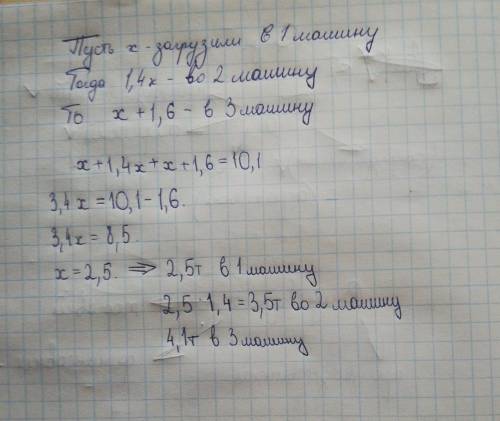 Пусть x - загрузили в 1 машину
Тогда 1,4x - во 2 машину
То x + 1,6 - в 3 машину
x+1,4x+x+1,6=10,1
3,4x=10,1-1,6.
3,4x=8,5.
x=2,5. ⇒ 2,5т в 1 машину
2,5·1,4=3,5т во 2 машину
4,1т в 3 машину